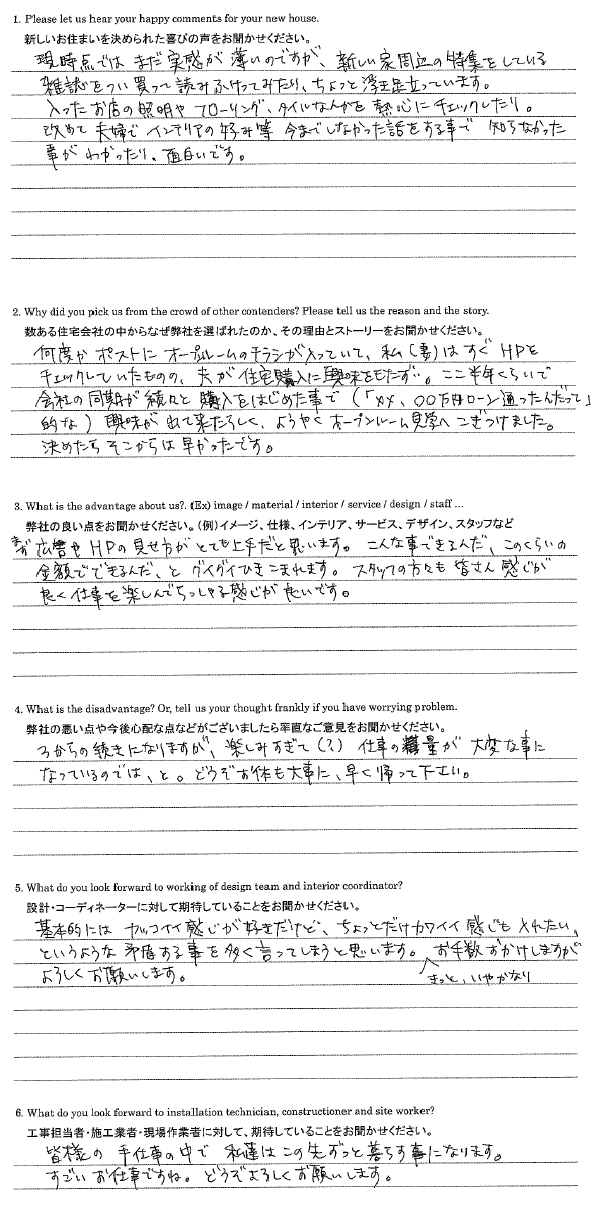 1. Please let us hear your happy comments for your new house.
新しいお住まいを決められた喜びの声をお聞かせください。
現時点では まだ実感が 薄いのですが、新しい家周辺の特集をしている
雑誌をつい買って読みふけってみたり、ちょっと浮き足立っています。
入ったお店の照明や フローリング、タイルなんかを 熱心にチェックしたり。
改めて 夫婦で インテリアの好み等 今までしなかった話をする事で 知らなかった
事が わかったり、面白いです。
2. Why did you pick us from the crowd of other contenders? Please tell us the reason and the story.
数ある住宅会社の中からなぜ弊社を選ばれたのか、その理由とストーリーをお聞かせください。
何度か ポストに オープンルームのチラシが入っていて、私(妻)は すぐ HPを
チェックしていたものの、夫が 住宅購入に興味をもたず…。ここ半年くらいで
会社の同期が 続々と 購入をはじめた事で (「××、〇〇万円ローン通ったんだって」
的な) 興味が出て来たらしく、ようやく オープンルーム見学へ こぎつけました。
決めたら そこからは 早かったです。
3. What is the advantage about us?. (Ex) image / material / interior / service / design / staff ...
弊社の良い点をお聞かせください。(例)イメージ、仕様、インテリア、サービス、デザイン、スタッフなど
まず 広告や HPの見せ方が とても上手だと思います。こんな事できるんだ、このくらいの
金額でできるんだ、と グイグイひきこまれます。スタッフの方々も 皆さん 感じが
良く 仕事を楽しんでらっしゃる感じが 良いです。
4. What is the disadvantage? Or, tell us your thought frankly if you have worrying problem.
弊社の悪い点や今後心配な点などがございましたら率直なご意見をお聞かせください。
3からの続きになりますが、楽しみすぎて(?) 仕事の量が 大変な事に
なっているのでは、と。どうぞお体も大事に、早く帰って下さい。
5. What do you look forward to working of design team and interior coordinator?
設計・コーディネーターに対して期待していることをお聞かせください。
基本的には カッコイイ感じが好きだけど、ちょっとだけカワイイ感じも入れたい、
というような 矛盾する事を 多く言ってしまうと思います。お手数おかけしますが
きっと、いやかなり
よろしくお願いします。
6. What do you look forward to installation technician, constructioner and site worker?
工事担当者・施工業者・現場作業者に対して、期待していることをお聞かせください。
皆様の 手仕事の中で 私達はこの先ずっと暮らす事になります。
すごい お仕事ですね。どうぞよろしくお願いします。